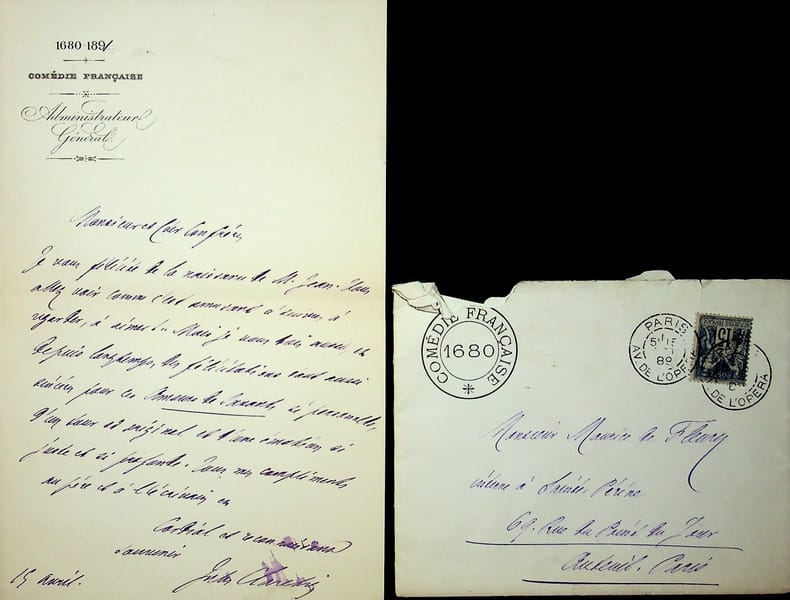 1680-1891
COMÉDIE FRANÇAISE
Administrateur
Général
Monsieur et Cher Confrère,
Je vous félicite de la naissance de M. Jean. Vous
allez voir comme c'est amusant à suivre, à
regarder, à aimer! Mais je vous dois aussi, et
depuis longtemps, des félicitations tout aussi
sincères pour ces Amours de Savants, si personnels,
d'un tour si original et d'une émotion si
juste et si profonde. Tous mes compliments
au père et à l'écrivain en
Cordial et reconnaissant
souvenir
Jules Claretie
15 avril.
COMÉDIE FRANÇAISE
1680
PARIS
AV. DE L'OPERA
15
DE L'OPERA
Monsieur Maurice de Fleury
interne à Sainte-Périne
69. Rue du Point du Jour
Auteuil. Paris